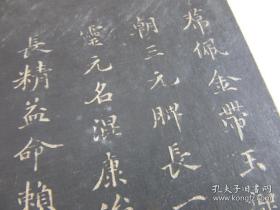 帬佩金帶玉
朝三元脾長一
靈元名混康治
長精益命賴
孔夫子旧书网